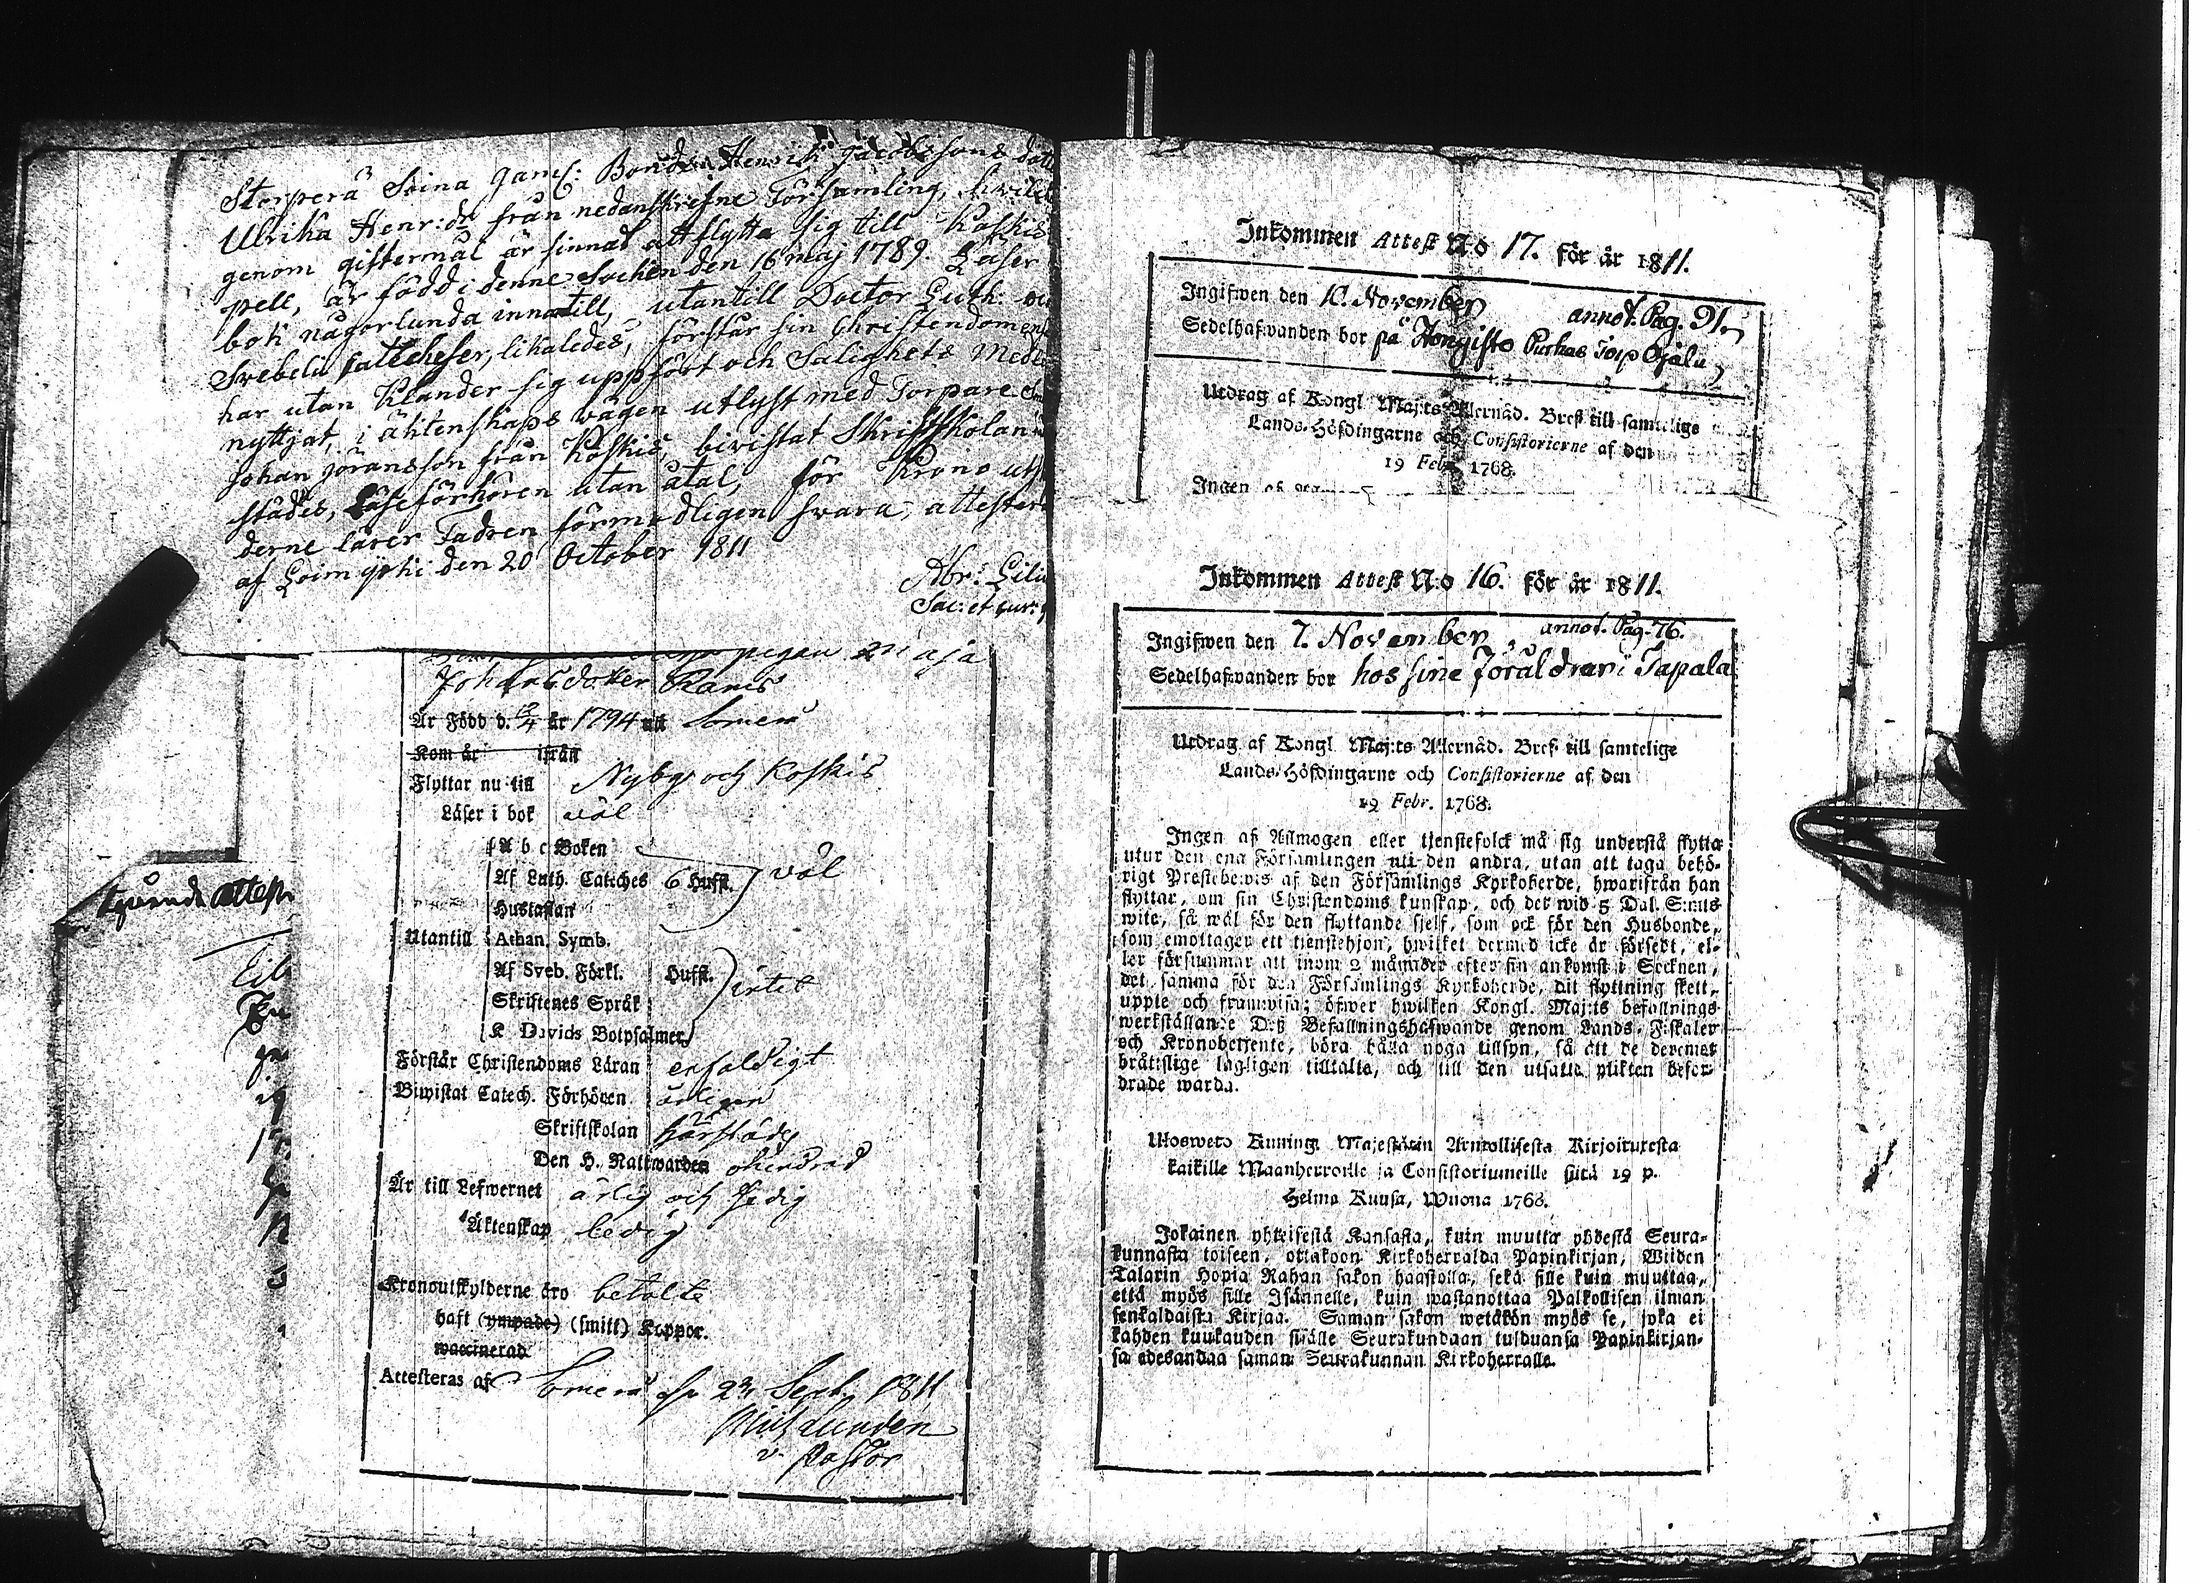 Storperä Soina gamf: Bonden Henrik Jacobssons dott
Ulrika Henr:dr från nedanskrefne Församling, hwilken
genom giftermål är sinnad att flytta sig till Koskis
pell, är född i denne Sochen den 16 maj 1789. Läser
bok någorlunda innantill, utantill Doctor Luth: och
Svebelii Catteheser, likaledes, förstår sin Christendom
har utan Klander sig uppfört och Salighets Med
nyttjat, i äktenskaps vägen utlyst med Torpare
Johan Göransson från Koskis, bevistat Skriftskolan
städes, Läseförhören utan åtal, för Krono uts
derne lärer Fadren förmodligen svara, attester
af Loimijoki den 20 October 1811
Abr: Lili
Sac: et cur:
tgörande attest
pigan Maja
Johansdotter Rams
Är Född d. 13/4 år 1794 uti Somero
Kom år ifrån
Flyttar nu till Nyby och Koskis
Läser i bok väl
A b c Boken
Af Luth. Cateches 6 Hufst. väl
Hustaflan
Utantill Athan. Symb.
Af Sveb. Förkl. Hufst.
Skriftenes Språk
K Davids Botpsalmer
Förstår Christendoms Läran enfaldigt
Biwistat Catech. Förhören årligen
Skriftskolan härstädes
Den H. Nattwarden ohindrad
Är till Lefwernet ärlig och sedig
Äktenskap ledig
Kronoutskylderne äro betalte
haft (ympade) (smitt) Koppor.
waccinerad
Attesteras af Somero d. 23 Septb 1811
v. Pastor
Inkommen Attest N:o 17. för år 1811.
Ingifwen den 10. November annot. Pag. 91.
Sedelhafwanden bor på Hongisto Purhas Torp Ojala
Utdrag af Kongl Maj:ts Allernåd. Bref till samtelige
Lands-Höfdingarne och Consistorierne af den
19 Febr. 1768.
Ingen af
Inkommen Attest N:o 16. för år 1811.
Ingifwen den 7. November, annot. Pag. 76.
Sedelhafwanden bor hos sine föräldrar i Tapala
Utdrag af Kongl Maj:ts Allernåd. Bref till samtelige
Lands-Höfdingarne och Consistorierne af den
19 Febr. 1768.
Ingen af Allmogen eller tjenstefolck må sig understå flytta
utur den ena Församlingen uti den andra, utan att taga behö-
rigt Prestebewis af den Församlings Kyrkoherde, hwarifrån han
flyttar, om sin Christendoms kunskap, och det wid 5 Dal. S:mts
wite, så wäl för den flyttande sjelf, som ock för den Husbonde,
som emottager ett tjenstehjon, hwilket dermed icke är försedt, el-
ler försummar att inom 2 månader efter sin ankomst i Socknen,
det samma för den Församlings Kyrkoherde, dit flyttning skett,
uppte och framwisa; öfwer hwilken Kongl. Maj:ts befallnings
werkställande Deß Befallningshafwande genom Lands-Fiskaler
och Kronobetjente, böra hålla noga tillsyn, så att de deremot
bråttslige lagligen tilltalte, och till den utsatta plikten befor-
drade warda.
Ulosweto Kuning. Majestätin Armollisesta Kirjoituxesta
kaikille Maanherroille ja Consistoriumeille siitä 19 p.
Helma Kuusa, Wuona 1768.
Jokainen yhteisestä Kansasta, kuin muutta yhdestä Seura-
kunnasta toiseen, ottakoon Kirkoherralda Papinkirjan, Wiiden
Talarin Hopia Rahan sakon haastolla, sekä sille kuin muuttaa,
että myös sille Isännelle, kuin wastanottaa Palkollisen ilman
senkaldaista Kirjaa. Saman sakon wetäkön myös se, joka ei
kahden kuukauden sisälle Seurakundaan tulduansa Papinkirjan-
sa edesandaa saman Seurakunnan Kirkoherralle.